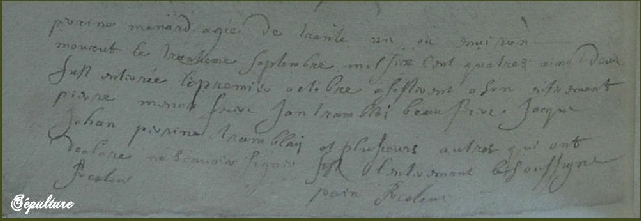 perine menard agée de trante un an environ
mourut le trantieme septembre mil six cent quatre vingt deux
fust enterée le premie octobre assisterent a son enterement
pierre menar frere Jan tramblai beau frere Jacque
Johan perrine tramblai et plusieurs autres qui ont
declare ne scavoir signer fist l'enterement
Sépulture